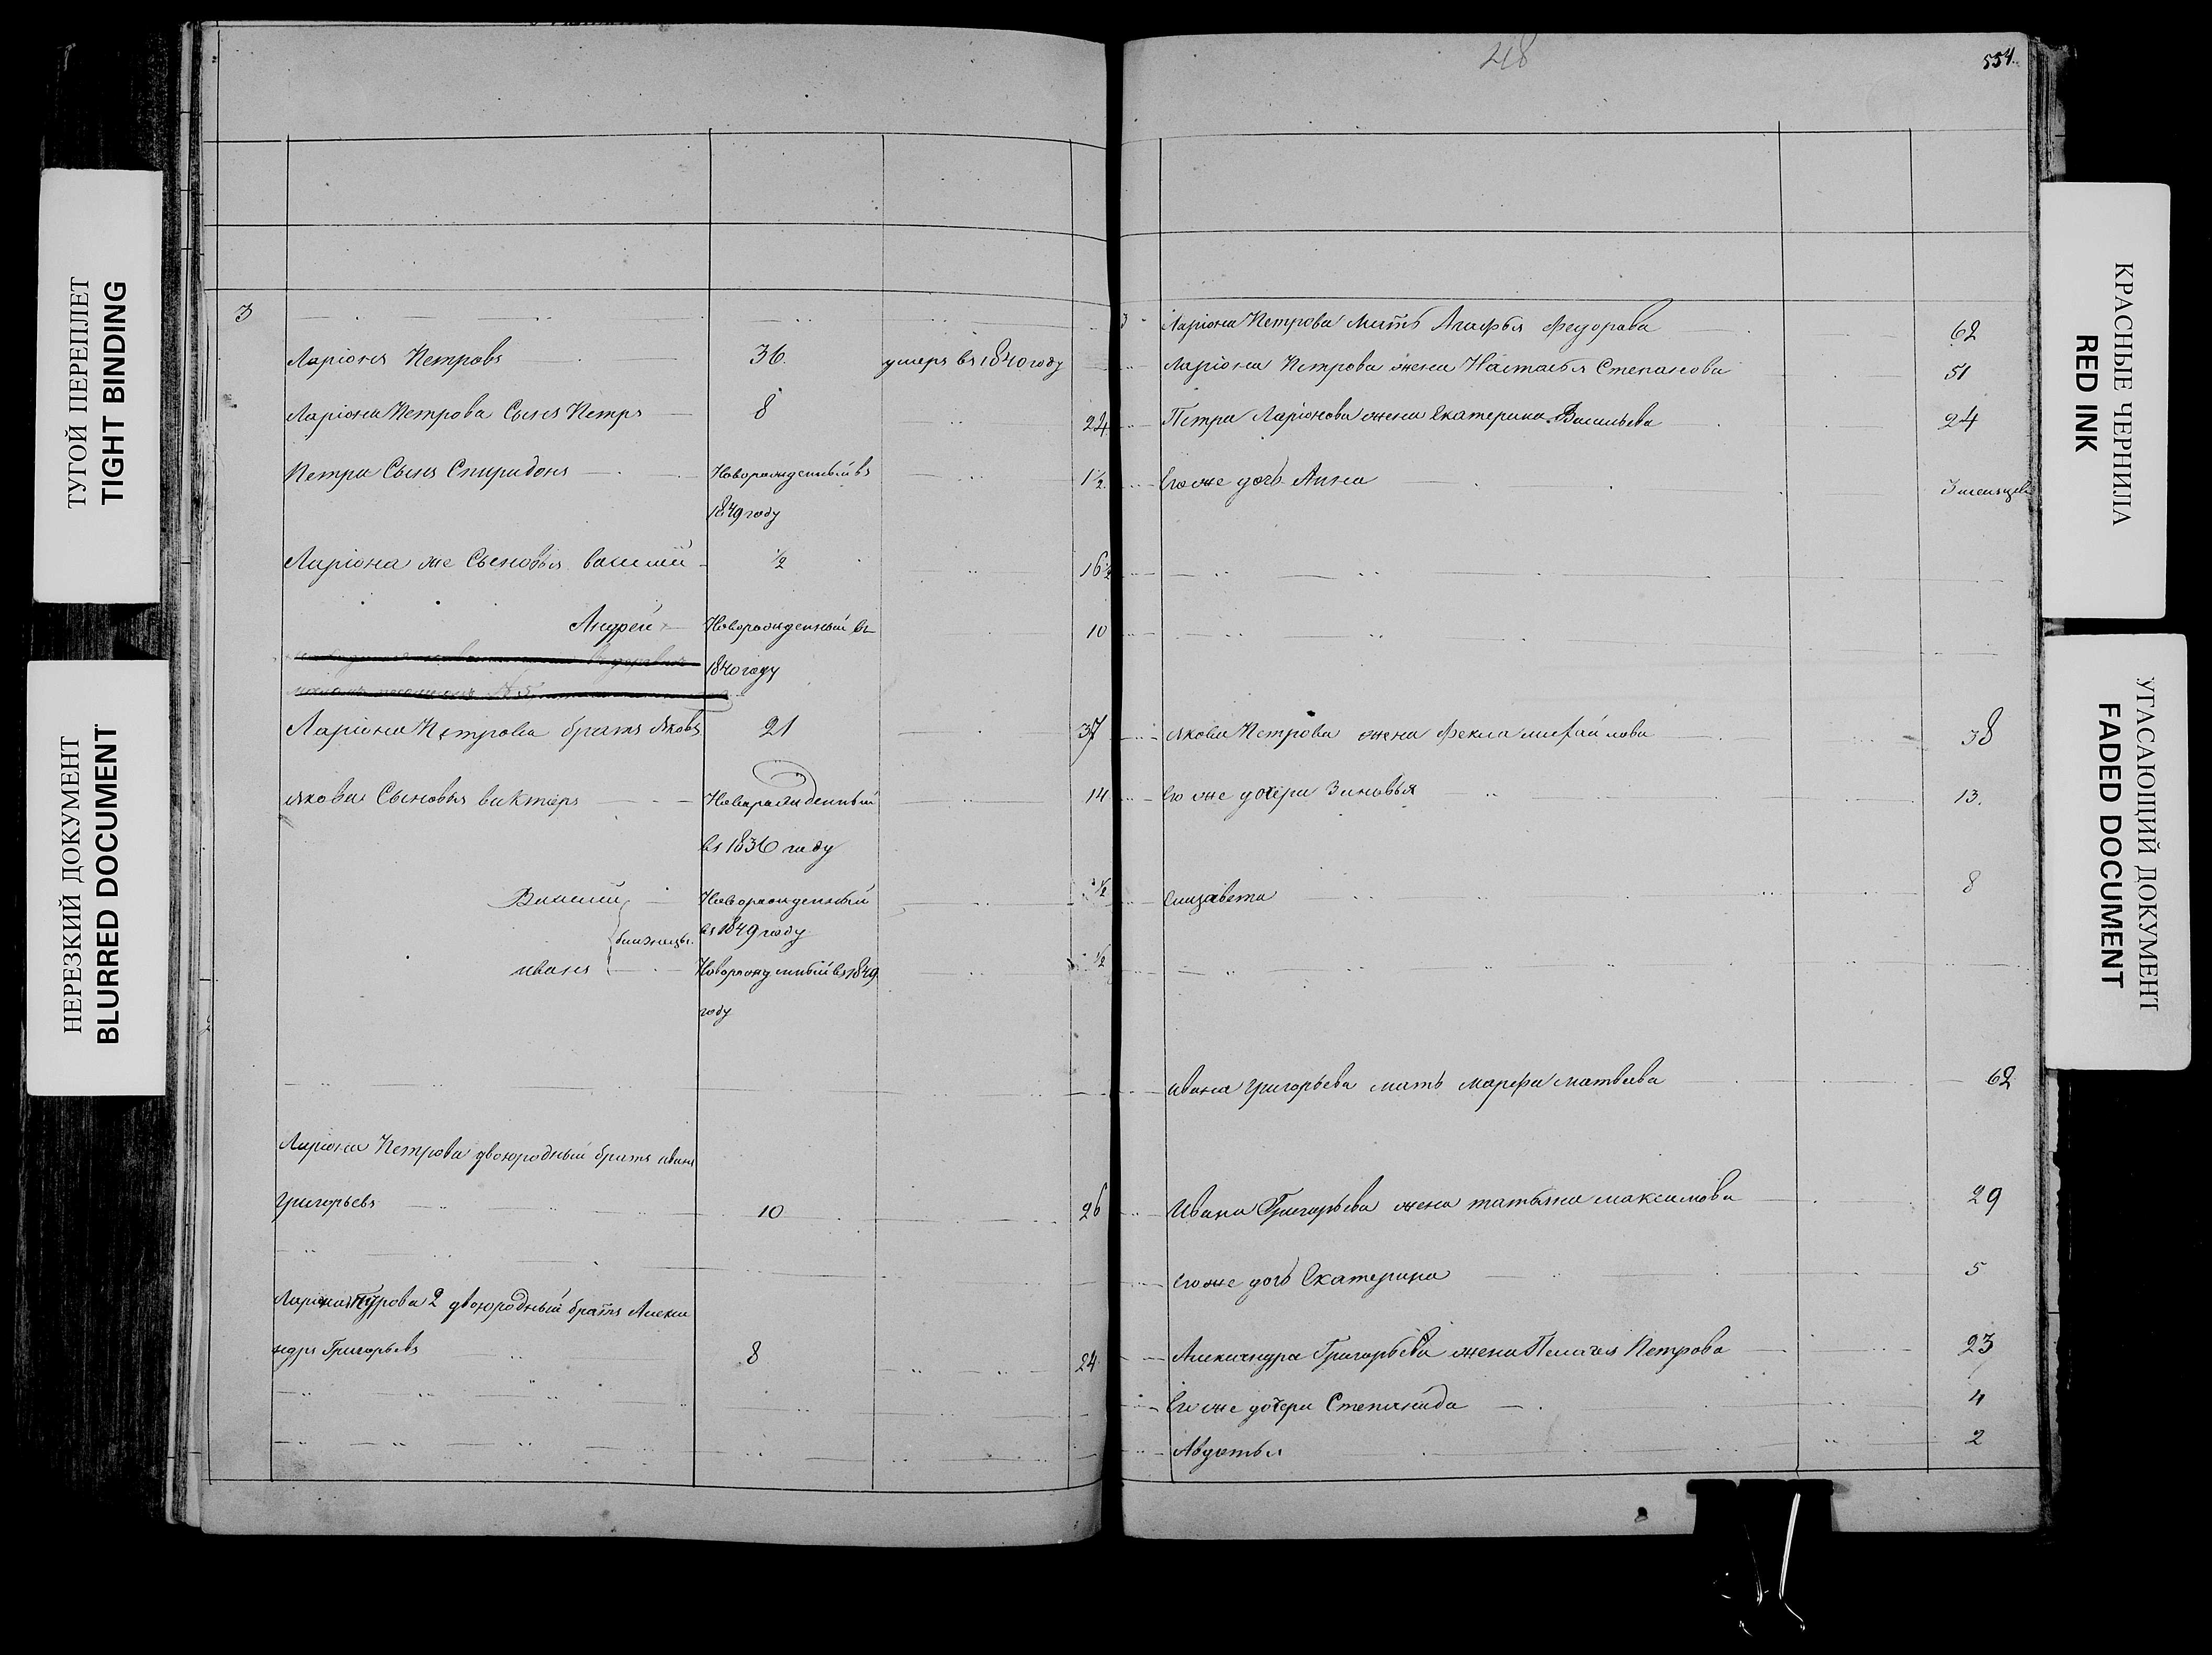 ТУГОЙ ПЕРЕПЛЕТ
TIGHT BINDING
НЕРЕЗКИЙ ДОКУМЕНТ
BLURRED DOCUMENT
3
Ларіонъ Петровъ 36. умеръ въ 1840 году
Ларіона Петрова Сынъ Петръ 8 24
Петра Сынъ Спиридонъ Новорожденный въ 1½
1849 году
Ларіона же Сыновья василий ½ 16½
Андрей Новорожденный въ 10
1840 году
Ларіона Петрова братъ Яковъ 21 37
Якова Сыновья виктеръ Новорожденный 14
въ 1836 году
Василий Новорожденный ½
близнецы. въ 1849 году
иванъ Новорожденный въ 1849 ½
году
Ларіона Петрова двоюродный братъ иванъ
Григорьевъ 10 26
Ларіона Петрова 2 двоюродный братъ Алекса
ндръ Григорьевъ 8 24
48
554.
3 Ларіона Петрова мать Агафья Федорова 62
Ларіона Петрова жена Настасья Степанова 51
Петра Ларіонова жена Екатерина Васильева 24
Его же дочь Анна 3 месяцев
Якова Петрова жена Фекла михайлова 38
Его же дочери Зиновья 13.
Елизавета 8
ивана Григорьева мать марфа матвеева 62
Ивана Григорьева жена татьяна максимова 29
Его же дочь Екатерина 5
Александра Григорьева жена Пелагея Петрова 23
Его же дочери Степанида 4
Авдотья 2
КРАСНЫЕ ЧЕРНИЛА
RED INK
УГАСАЮЩИЙ ДОКУМЕНТ
FADED DOCUMENT